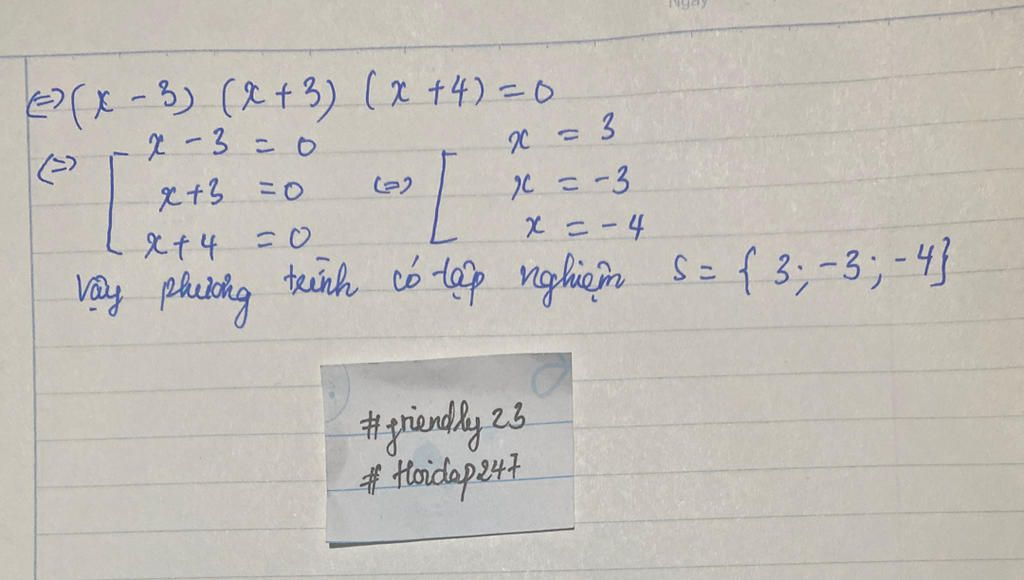 Ngày
<=> (x - 3) (x + 3) (x + 4) = 0
<=> [ x - 3 = 0 <=> [ x = 3
x + 3 = 0 x = -3
x + 4 = 0 x = -4
Vậy phương trình có tập nghiệm S = { 3; -3; -4}
#friendly23
# Hoidap247